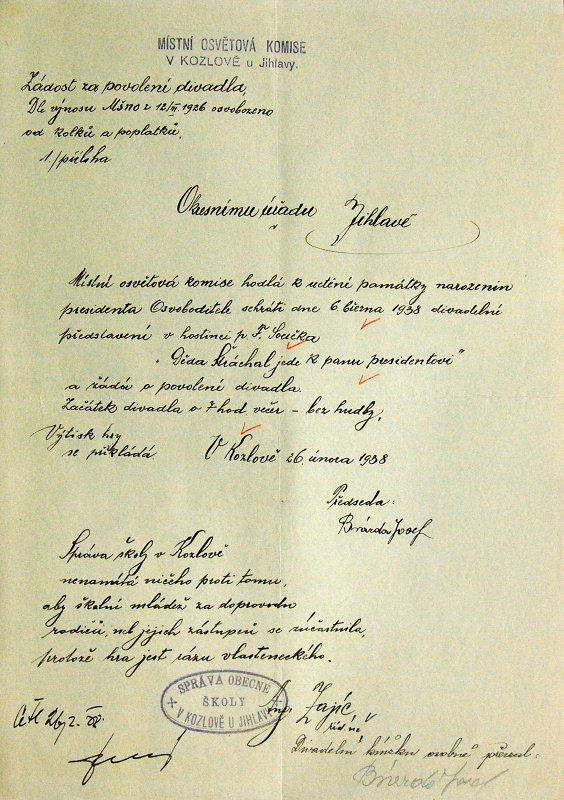 MÍSTNÍ OSVĚTOVÁ KOMISE
V KOZLOVĚ u Jihlavy.
Žádost za povolení divadla,
Dle výnosu Mšno z 12/III. 1926 osvobozeno
od kolků a poplatků.
1./příloha
Okresnímu úřadu Jihlavě
Místní osvětová komise hodlá k uctině památky narozenin
presidenta Osvoboditele sehráti dne 6. března 1938 divadelní
představení v hostinci p. F. Součka
„Děda Kráchal jede k panu presidentovi"
a žádá o povolení divadla.
Začátek divadla o 7 hod. večer – bez hudby.
Výtisk hry
se přikládá
V Kozlově 26. února 1938
Předseda:
Josef
Správa školy v Kozlově
nenamítá ničeho proti tomu,
aby školní mládež za doprovodu
rodičů, neb jejich zástupců se zúčastnila,
protože hra jest rázu vlasteneckého.
SPRÁVA OBECNÉ
ŠKOLY
V KOZLOVĚ U JIHLAVY
Zajíc
říd. uč.
Divadelní knížku osobně
Josef